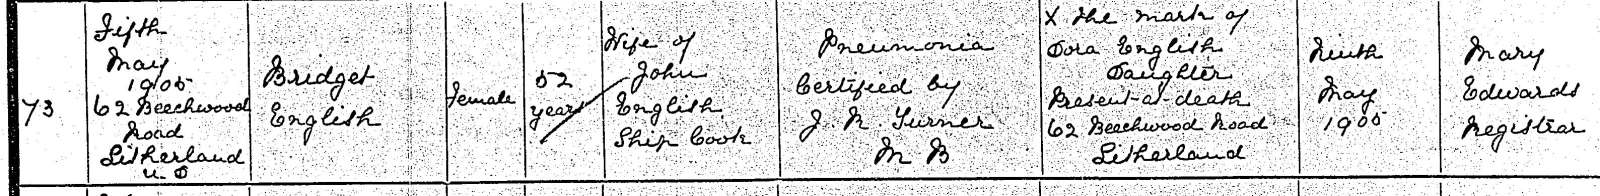 73
Fifth
May
1905
62 Beechwood
Road
Litherland
U. D
Bridget
English
Female
52
years
Wife of
John
English
Ship Cook
Pneumonia
Certified by
J. N. Turner
M B
X The mark of
Dora English
Daughter
Present at death
62 Beechwood Road
Litherland
Ninth
May
1905
Mary
Edwards
Registrar